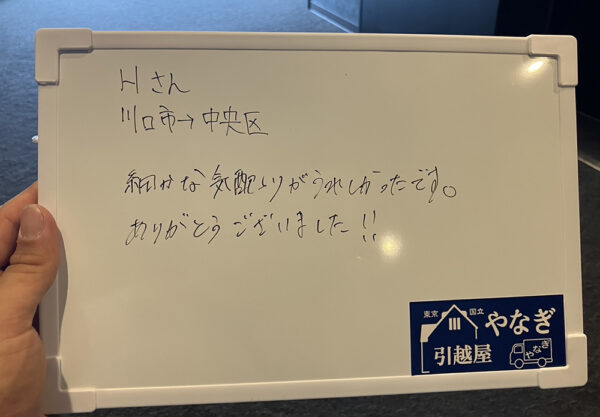 Hさん
川口市→中央区
細かな気配りがうれしかったです。
ありがとうございました!!
東京 国立 やなぎ
引越屋 やなぎ